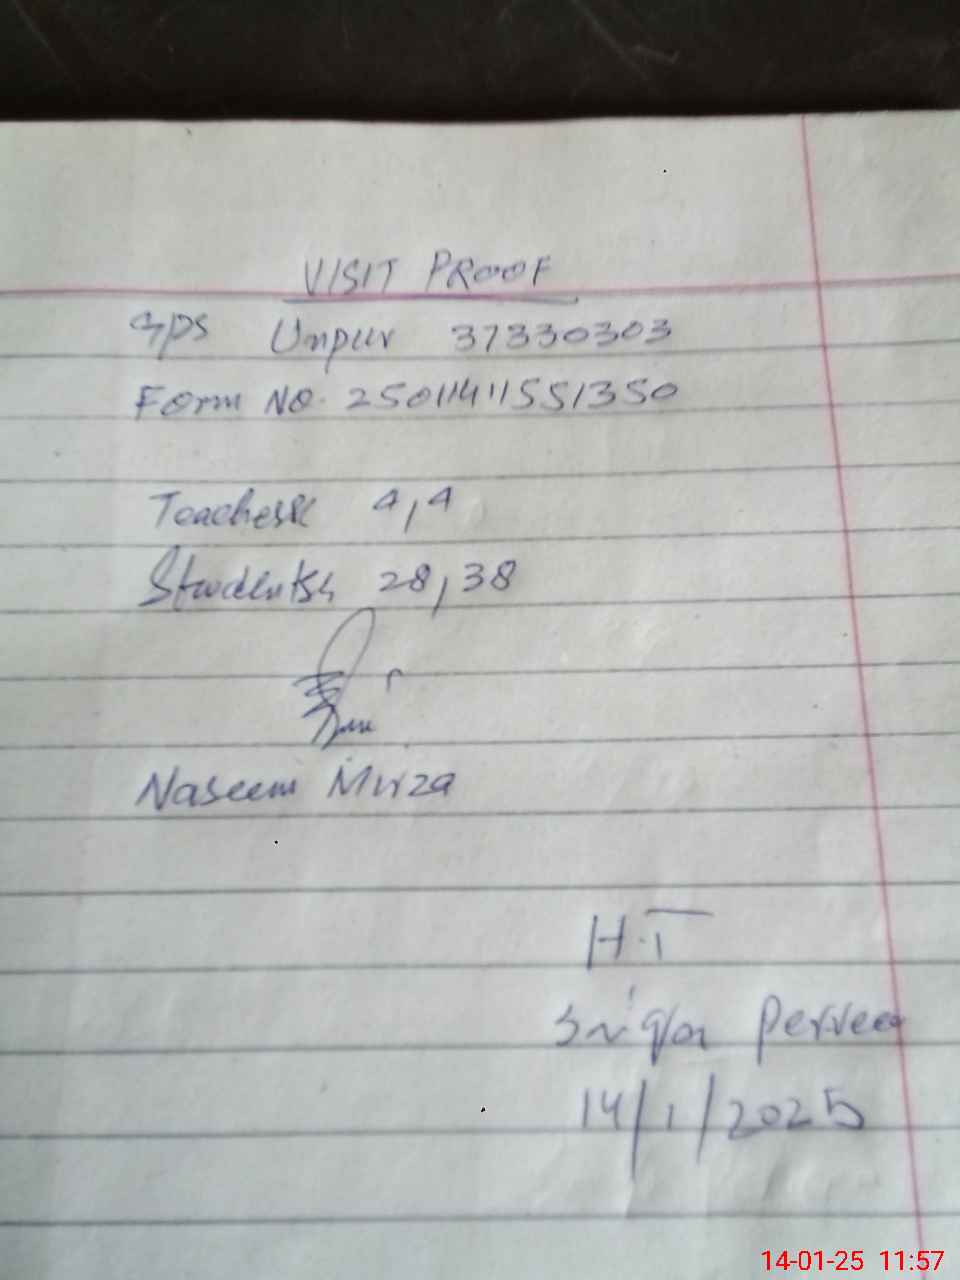 VISIT PROOF
GPS Unpur 37330303
Form NO. 25011411551350
Teachers 4,4
Students 28,38
Naseem Mirza
H.T
Perveen
14/1/2025
14-01-25 11:57